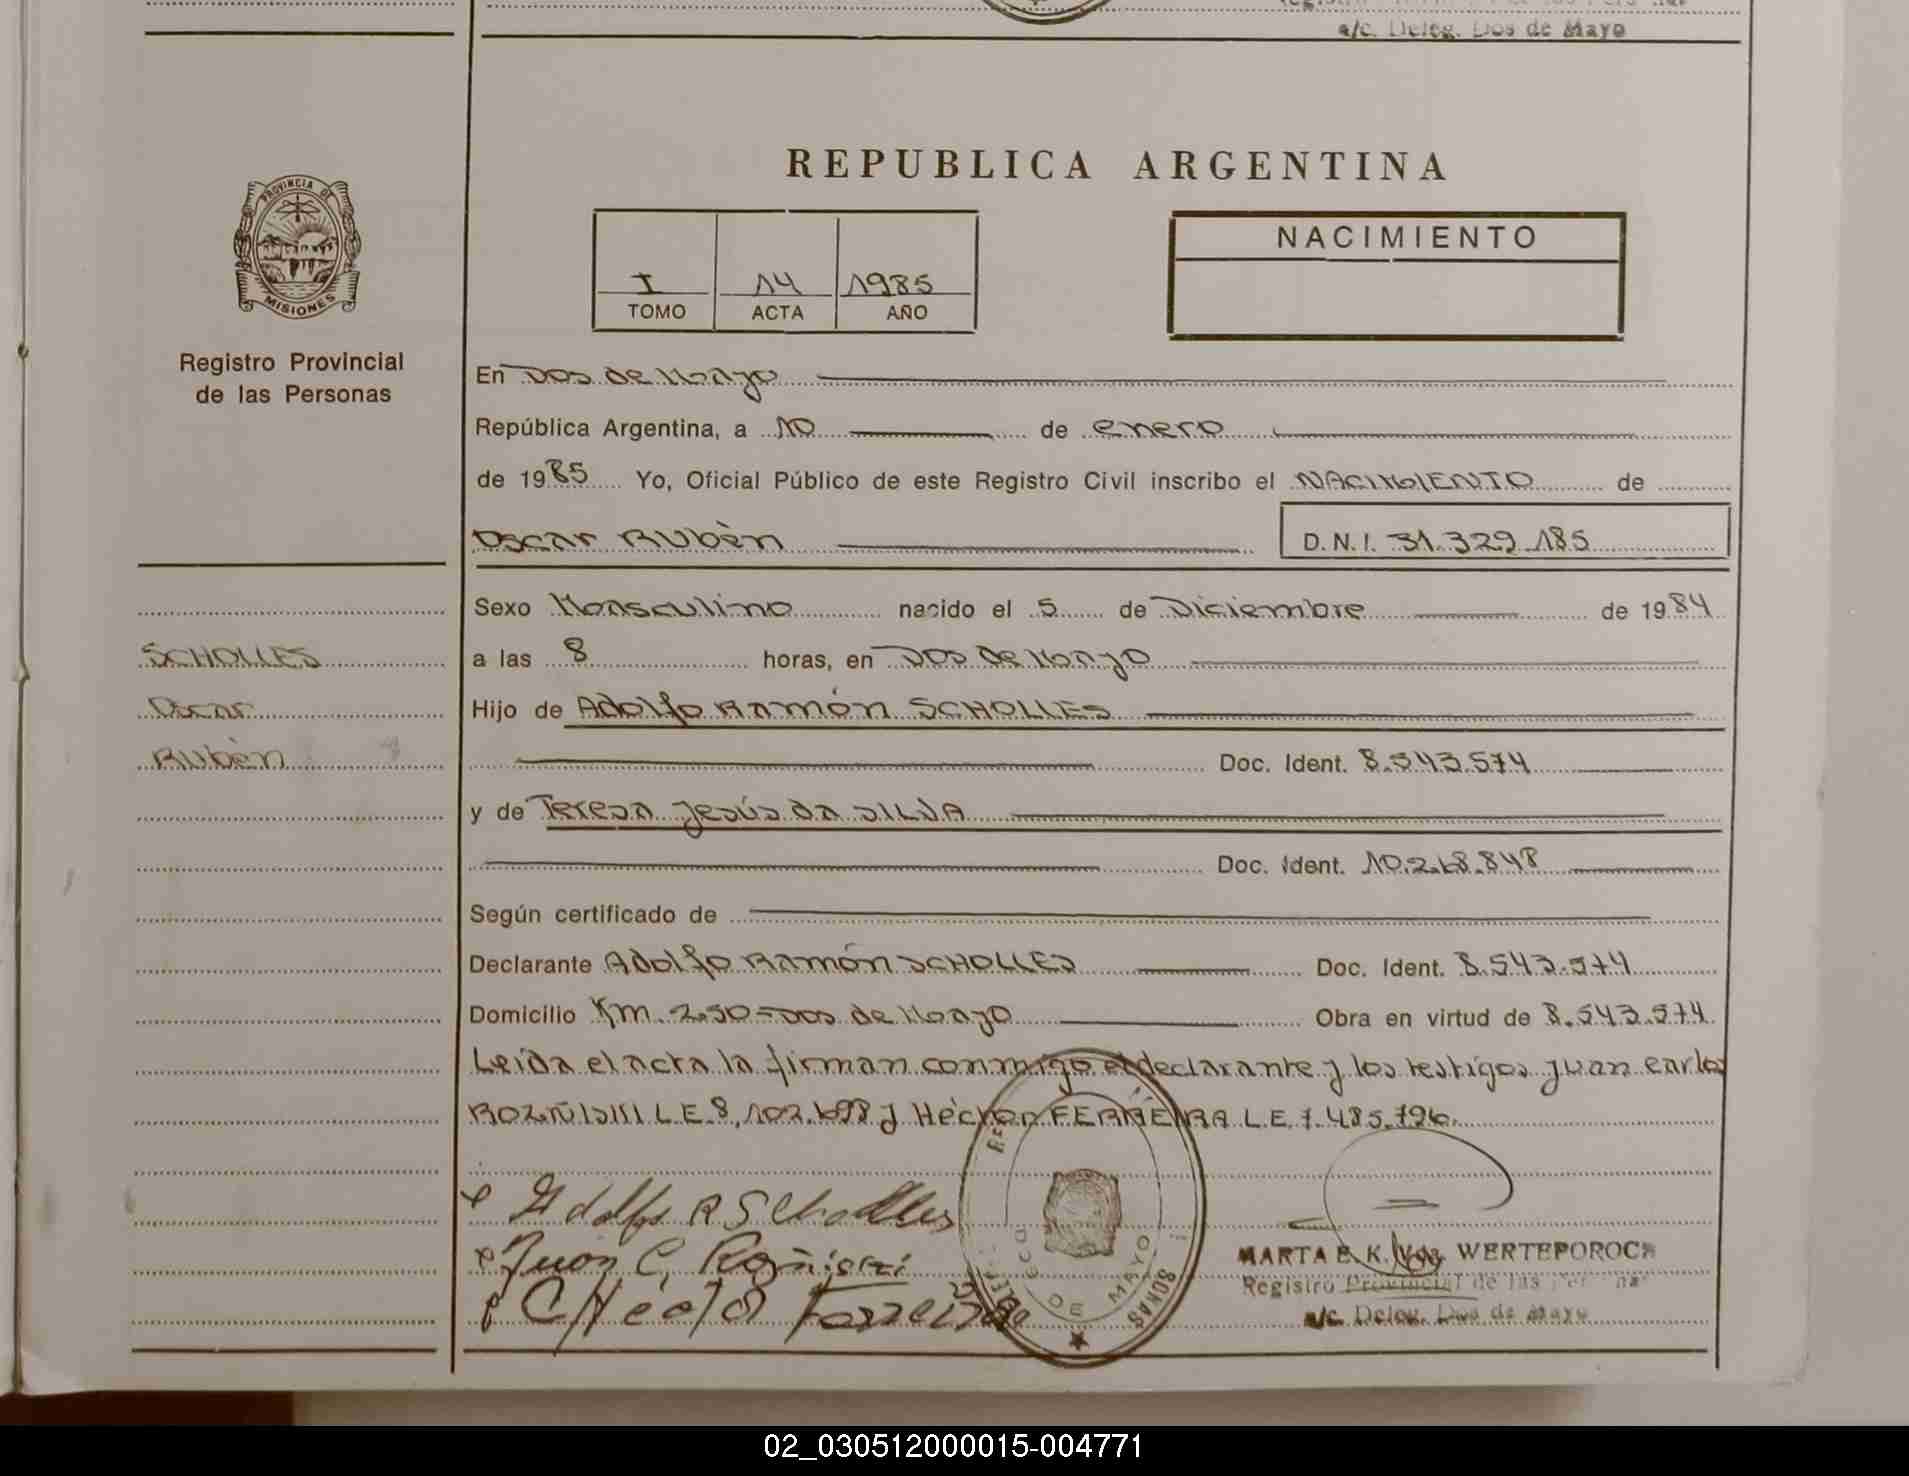 a/c. Deleg. Dos de Mayo
REPUBLICA ARGENTINA
PROVINCIA DE
MISIONES
Registro Provincial
de las Personas
I 14 1985
TOMO ACTA AÑO
NACIMIENTO
En Dos de Mayo
República Argentina, a 10 de enero
de 1985 Yo, Oficial Público de este Registro Civil inscribo el NACIMIENTO de
Oscar Rubèn D.N.I. 31.329.185
Sexo Masculino nacido el 5 de Diciembre de 1984
SCHOLLES
a las 8 horas, en Dos de Mayo
Oscar
Hijo de Adolfo Ramón SCHOLLES
Rubèn
Doc. Ident. 8.543.574
y de Teresa Jesús da SILVA
Doc. Ident. 10.268.848
Según certificado de
Declarante Adolfo Ramón SCHOLLES Doc. Ident. 8.543.574
Domicilio Km. 250 = Dos de Mayo Obra en virtud de 8.543.574
Leída el acta la firman conmigo el declarante y los testigos Juan Carlos
L.E. 8.102.698 y Héctor FERREIRA L.E. 7.485.796.
Adolfo R Scholles
Juan C.
Héctor Ferreira
DE MAYO
MARTA E. K. WERTEPOROCH
Registro Provincial de las
a/c. Deleg. Dos de Mayo
02_030512000015-004771